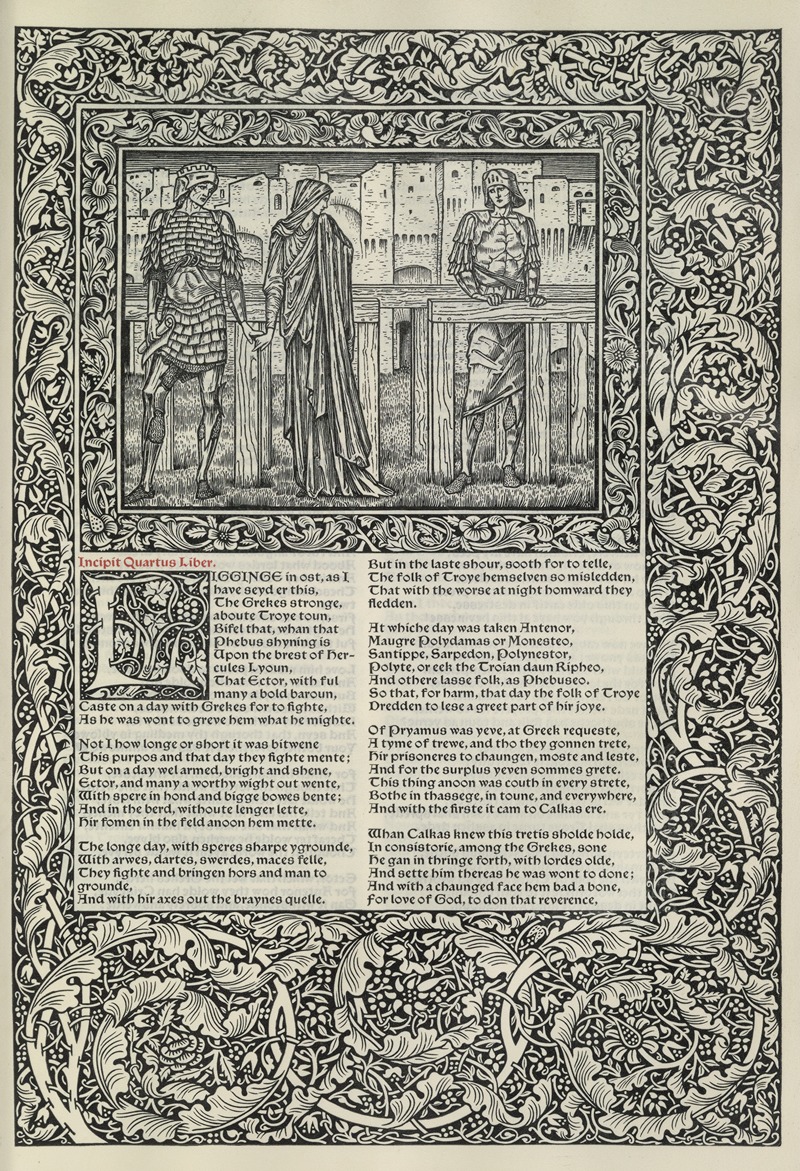 Incipit Quartus Liber.
LIGGINGE in ost, as I
have seyd er this,
The Grekes stronge,
aboute Troye toun,
Bifel that, whan that
Phebus shyning is
Upon the brest of Her-
cules Lyoun,
That Ector, with ful
many a bold baroun,
Caste on a day with Grekes for to fighte,
As he was wont to greve hem what he mighte.
Not I how longe or short it was bitwene
This purpos and that day they fighte mente;
But on a day wel armed, bright and shene,
Ector, and many a worthy wight out wente,
With spere in hond and bigge bowes bente;
And in the berd, withoute lenger lette,
Hir fomen in the feld anoon hem mette.
The longe day, with speres sharpe ygrounde,
With arwes, dartes, swerdes, maces felle,
They fighte and bringen hors and man to
grounde,
And with hir axes out the braynes quelle.
But in the laste shour, sooth for to telle,
The folk of Troye hemselven so misledden,
That with the worse at night homward they
fledden.
At whiche day was taken Antenor,
Maugre Polydamas or Monesteo,
Santippe, Sarpedon, Polynestor,
Polyte, or eek the Troian daun Ripheo,
And othere lasse folk, as Phebuseo.
So that, for harm, that day the folk of Troye
Dredden to lese a greet part of hir joye.
Of Pryamus was yeve, at Greek requeste,
A tyme of trewe, and tho they gonnen trete,
Hir prisoneres to chaungen, moste and leste,
And for the surplus yeven sommes grete.
This thing anoon was couth in every strete,
Bothe in thassege, in toune, and everywhere,
And with the firste it cam to Calkas ere.
Whan Calkas knew this tretis sholde holde,
In consistorie, among the Grekes, sone
He gan in thringe forth, with lordes olde,
And sette him thereas he was wont to done;
And with a chaunged face hem bad a bone,
For love of God, to don that reverence,